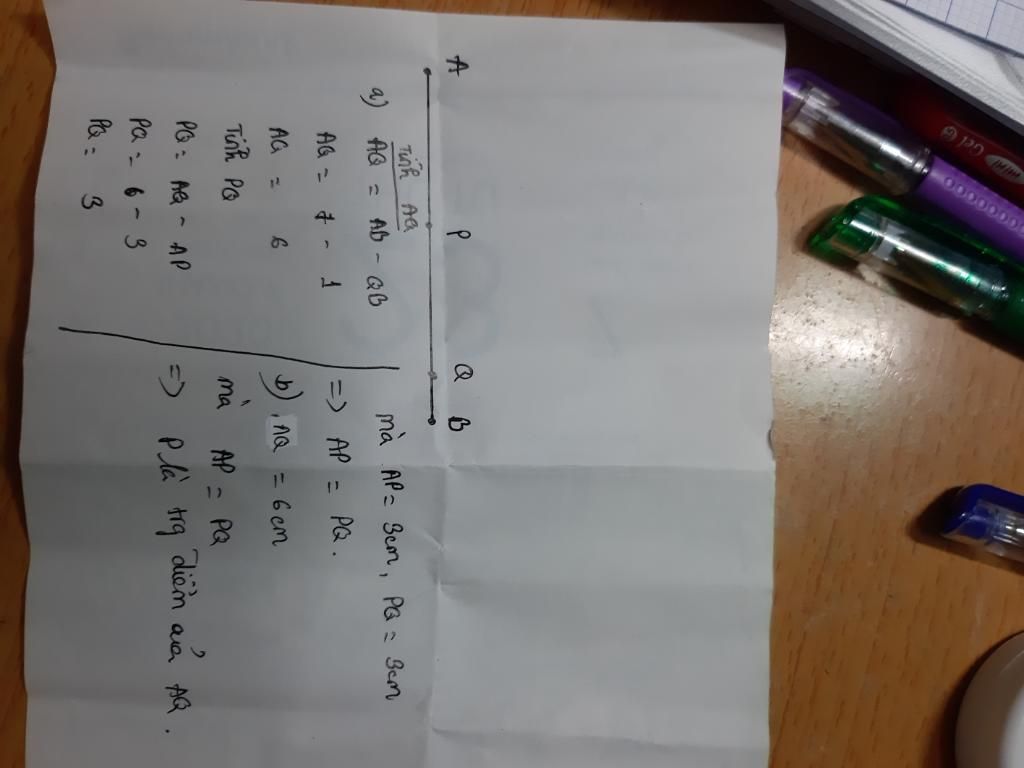 A P Q B
Tính AQ
a) AQ = AB - QB
AQ = 7 - 1
AQ = 6
Tính PQ
PQ = AQ - AP
PQ = 6 - 3
PQ = 3
mà AP = 3cm, PQ = 3cm
=> AP = PQ.
b) AQ = 6cm
mà AP = PQ
=> P là trg điểm của AQ.
Gel
MINI